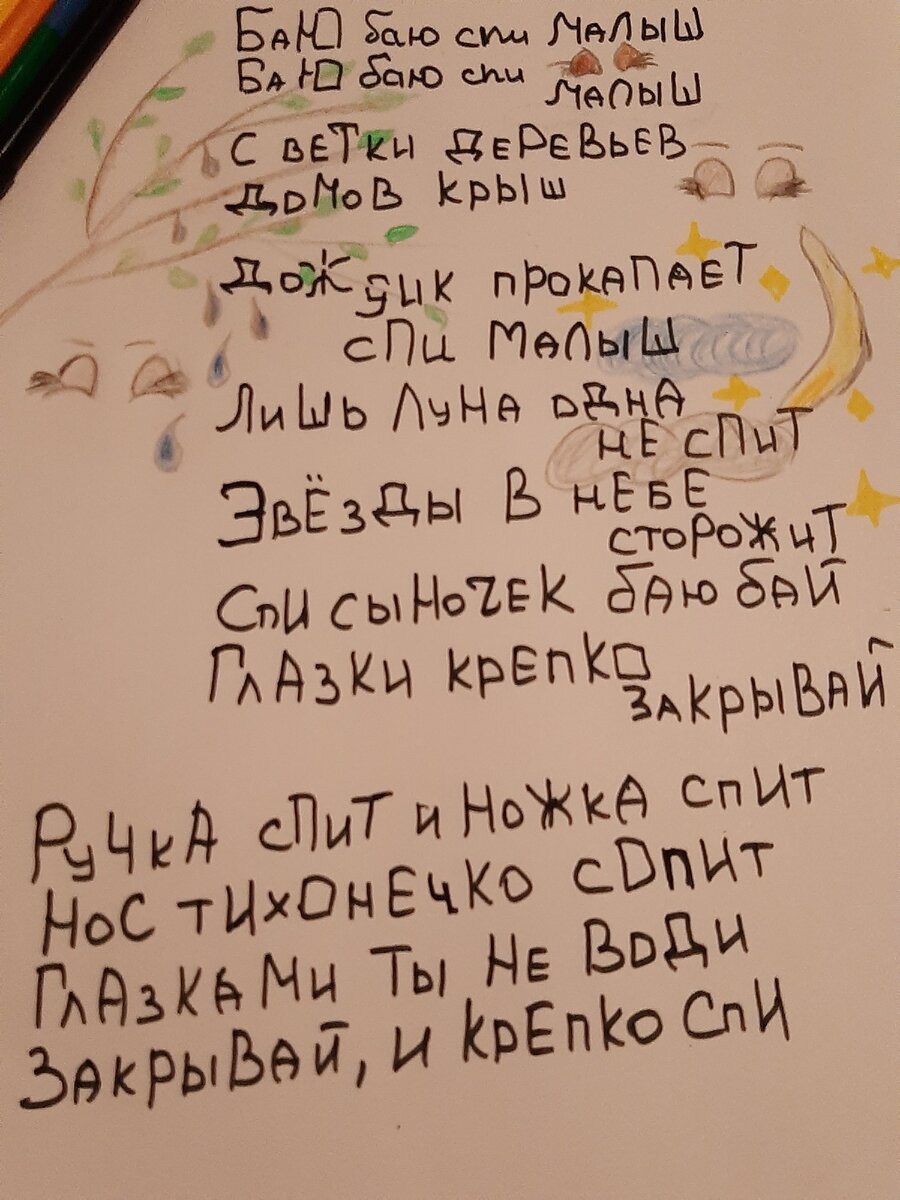 БАЮ баю спи МАЛЫШ
БАЮ баю спи
МАЛЫШ
С ВЕТКИ ДЕРЕВЬЕВ
ДОМОВ КРЫШ
ДОЖДИК ПРОКАПАЕТ
СПИ МАЛЫШ
ЛИШЬ ЛУНА ОДНА
НЕ СПИТ
ЗВЁЗДЫ В НЕБЕ
СТОРОЖИТ
СПИ СЫНОЧЕК БАЮ БАЙ
ГЛАЗКИ КРЕПКО
ЗАКРЫВАЙ
РУЧКА СПИТ И НОЖКА СПИТ
НОС ТИХОНЕЧКО СОПИТ
ГЛАЗКАМИ ТЫ НЕ ВОДИ
ЗАКРЫВАЙ, И КРЕПКО СПИ